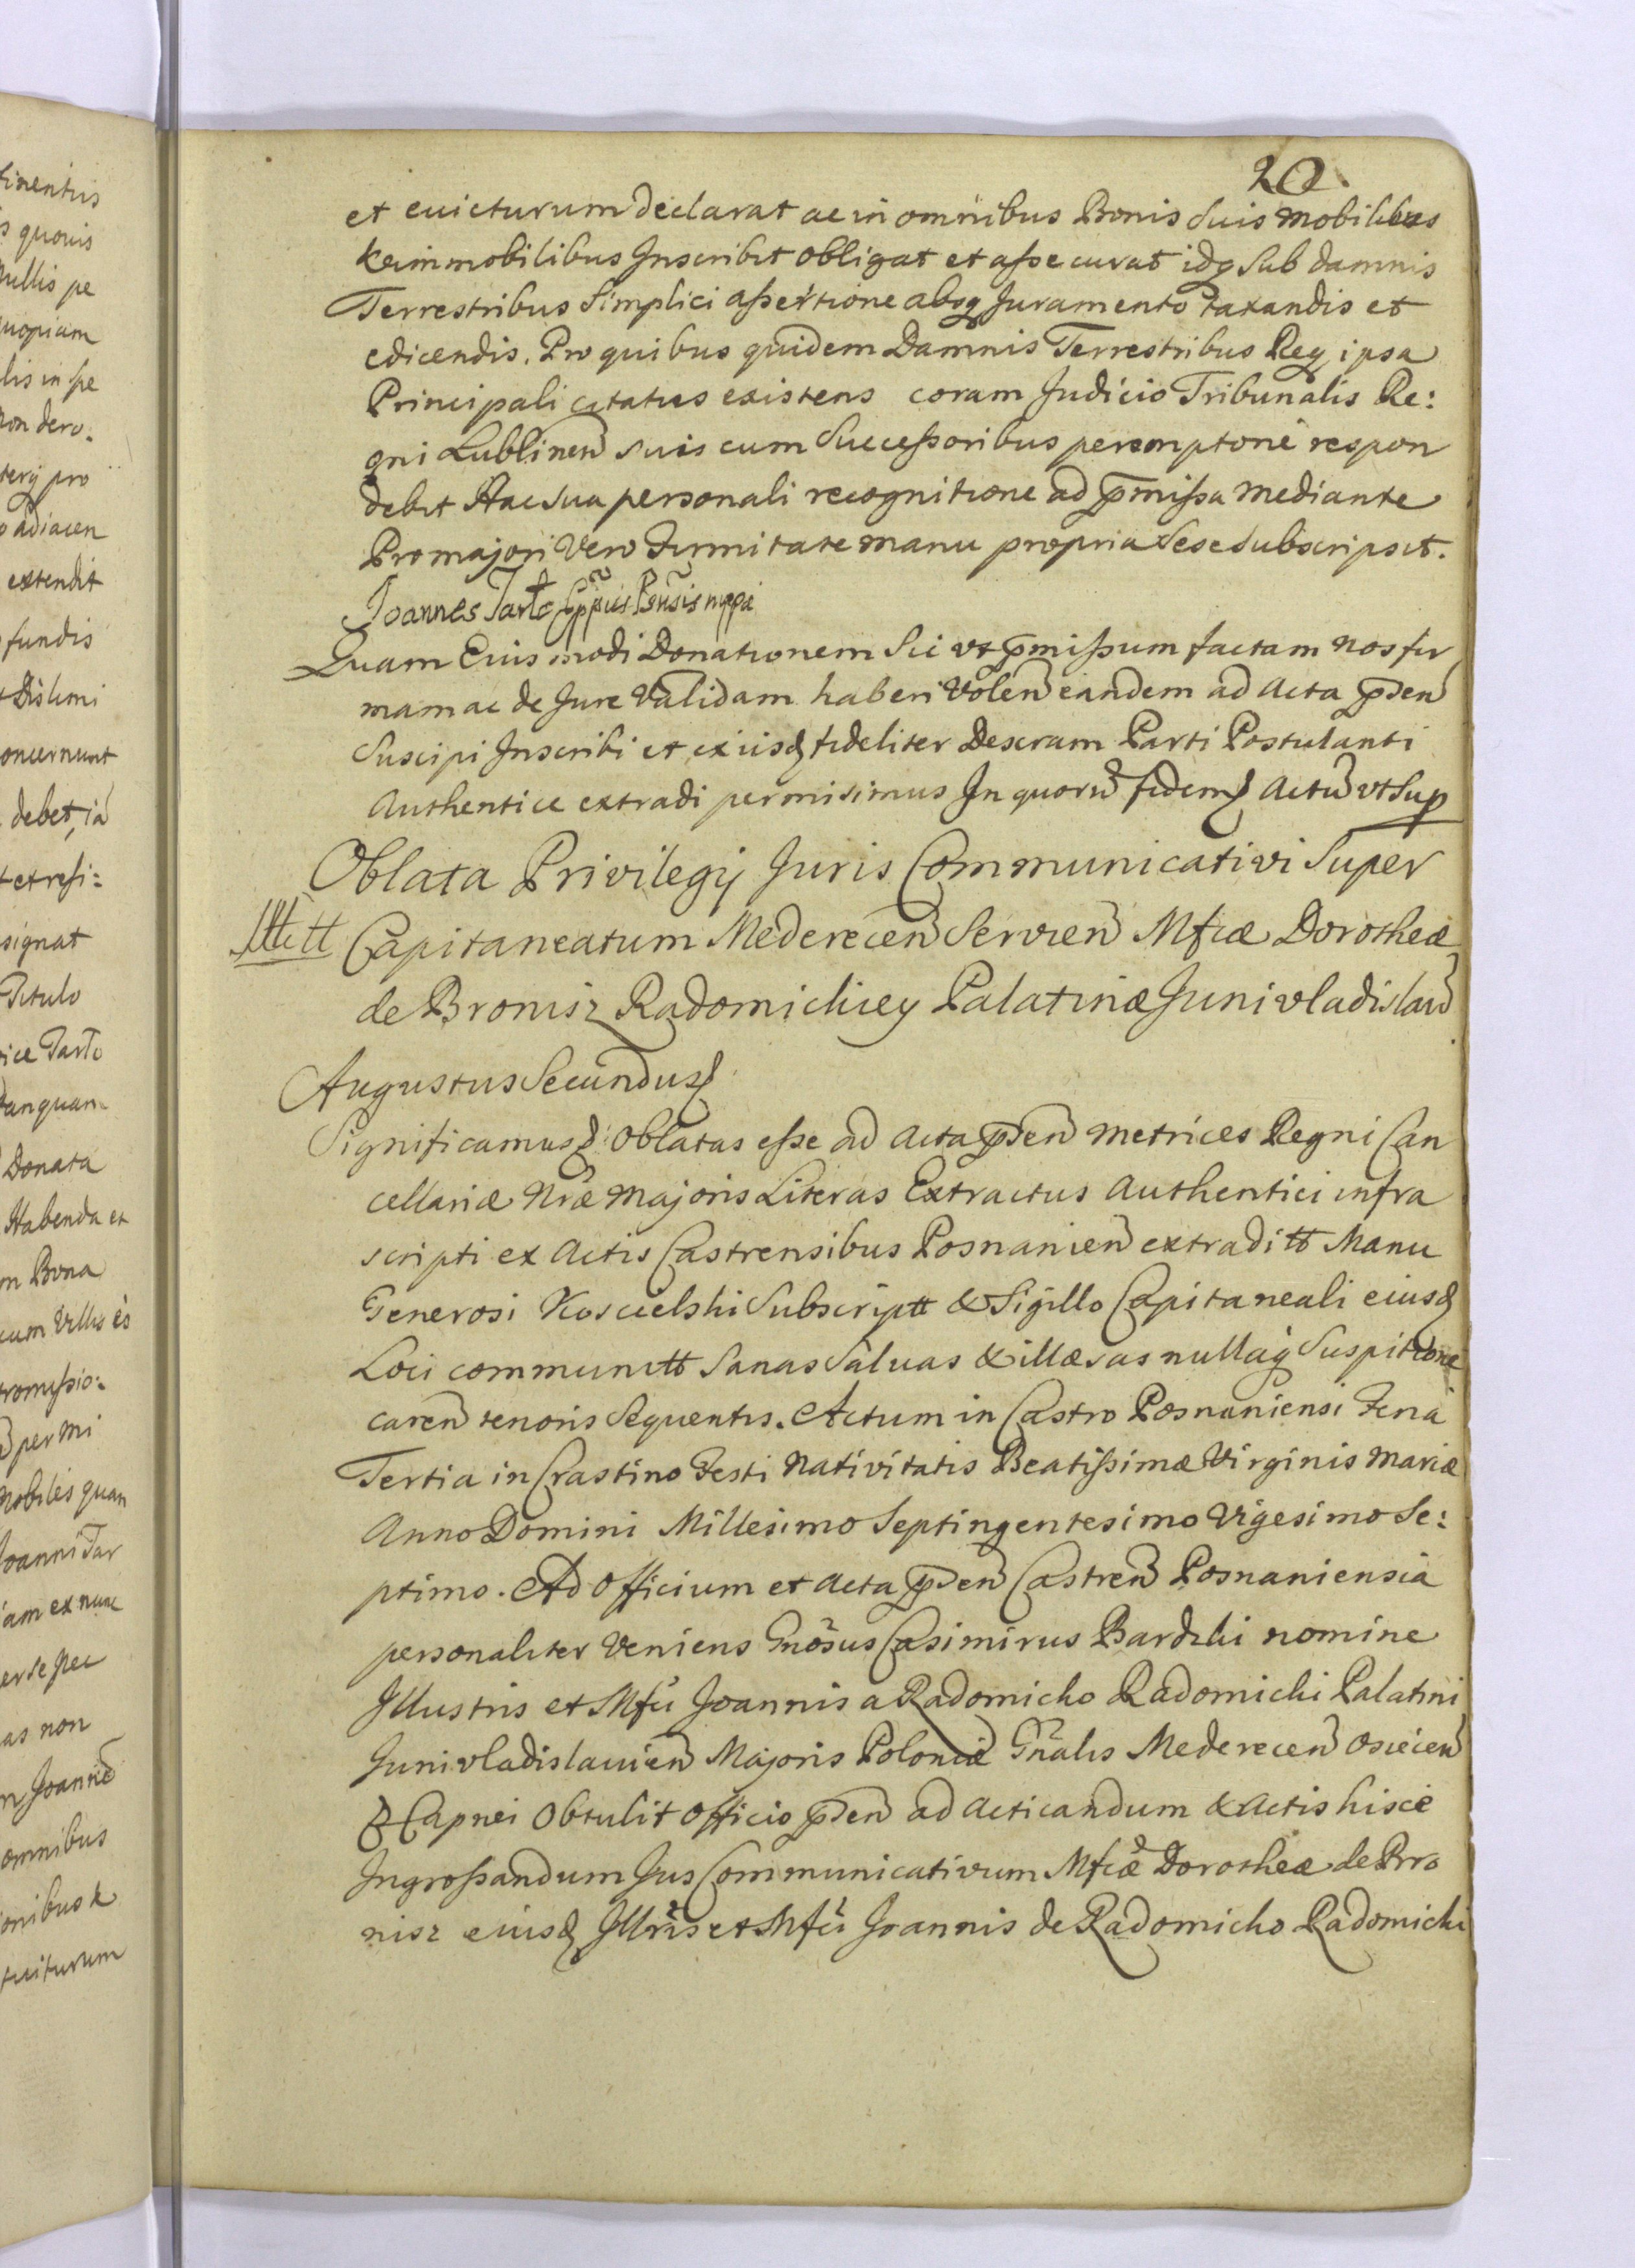 20.
et euicturum declarat ac in omnibus Bonis suis mobilibus
& immobilibus Inscribit obligat et assecurat idq sub damnis
Terrestribus simplici assertione absq Juramento taxandis et
edicendis. Pro quibus quidem Damnis Terrestribus Req ipsa
Principali citatus existens coram Judicio Tribunalis Re:
gni Lublinen suis cum Successoribus peremptorie respon
debit Hac sua personali recognitione ad pmissa mediante
Pro majori Vero Firmitate manu propria sese subscripsit.
Joannes Tarło Eppus Psnsis mppa
Quam Eiusmodi Donationem sic vt pmissum factam nos fir
mam ac de Jure Validam haberi Volen eandem ad Acta pden
Suscipi Inscribi et ex iisd fideliter Descram Parti Postulanti
Authentice extradi permisimus In quoru fidem Actu vt Sup
Oblata Privilegij Juris Communicativi Super
Capitaneatum Mederecen Servien Mfcæ Dorotheæ
de Bronisz Radomickiey Palatinæ Junivladislau
Augustus Secundus
Significamus Oblatas esse ad Acta pden Metrices Regni Can
cellariæ Nræ Majoris Literas Extractus Authentici infra
scripti ex Actis Castrensibus Posnanien extraditt Manu
Generosi Koscielski Subscriptt & Sigillo Capitaneali eiusd
Loci communitt Sanas Saluas & illæsas nullaq Suspitione
caren tenoris Sequentis. Actum in Castro Posnaniensi Feria
Tertia in Crastino Festi Nativitatis Beatissimæ Virginis Mariæ
Anno Domini Millesimo Septingentesimo Vigesimo Se:
ptimo. Ad Officium et Acta pden Castren Posnaniensia
personaliter Veniens Gnosus Casimirus Bardzki nomine
Illustris et Mfci Joannis a Radomicko Radomicki Palatini
Junivladislauien Majoris Poloniæ Gnalis Mederecen Osiecen
& Capnei Obtulit Officio pden ad Acticandum & Actis hisce
Ingrossandum Jus Communicativum Mfcæ Dorotheæ de Bro
nisz eiusd Illris et Mfci Joannis de Radomicko Radomicki